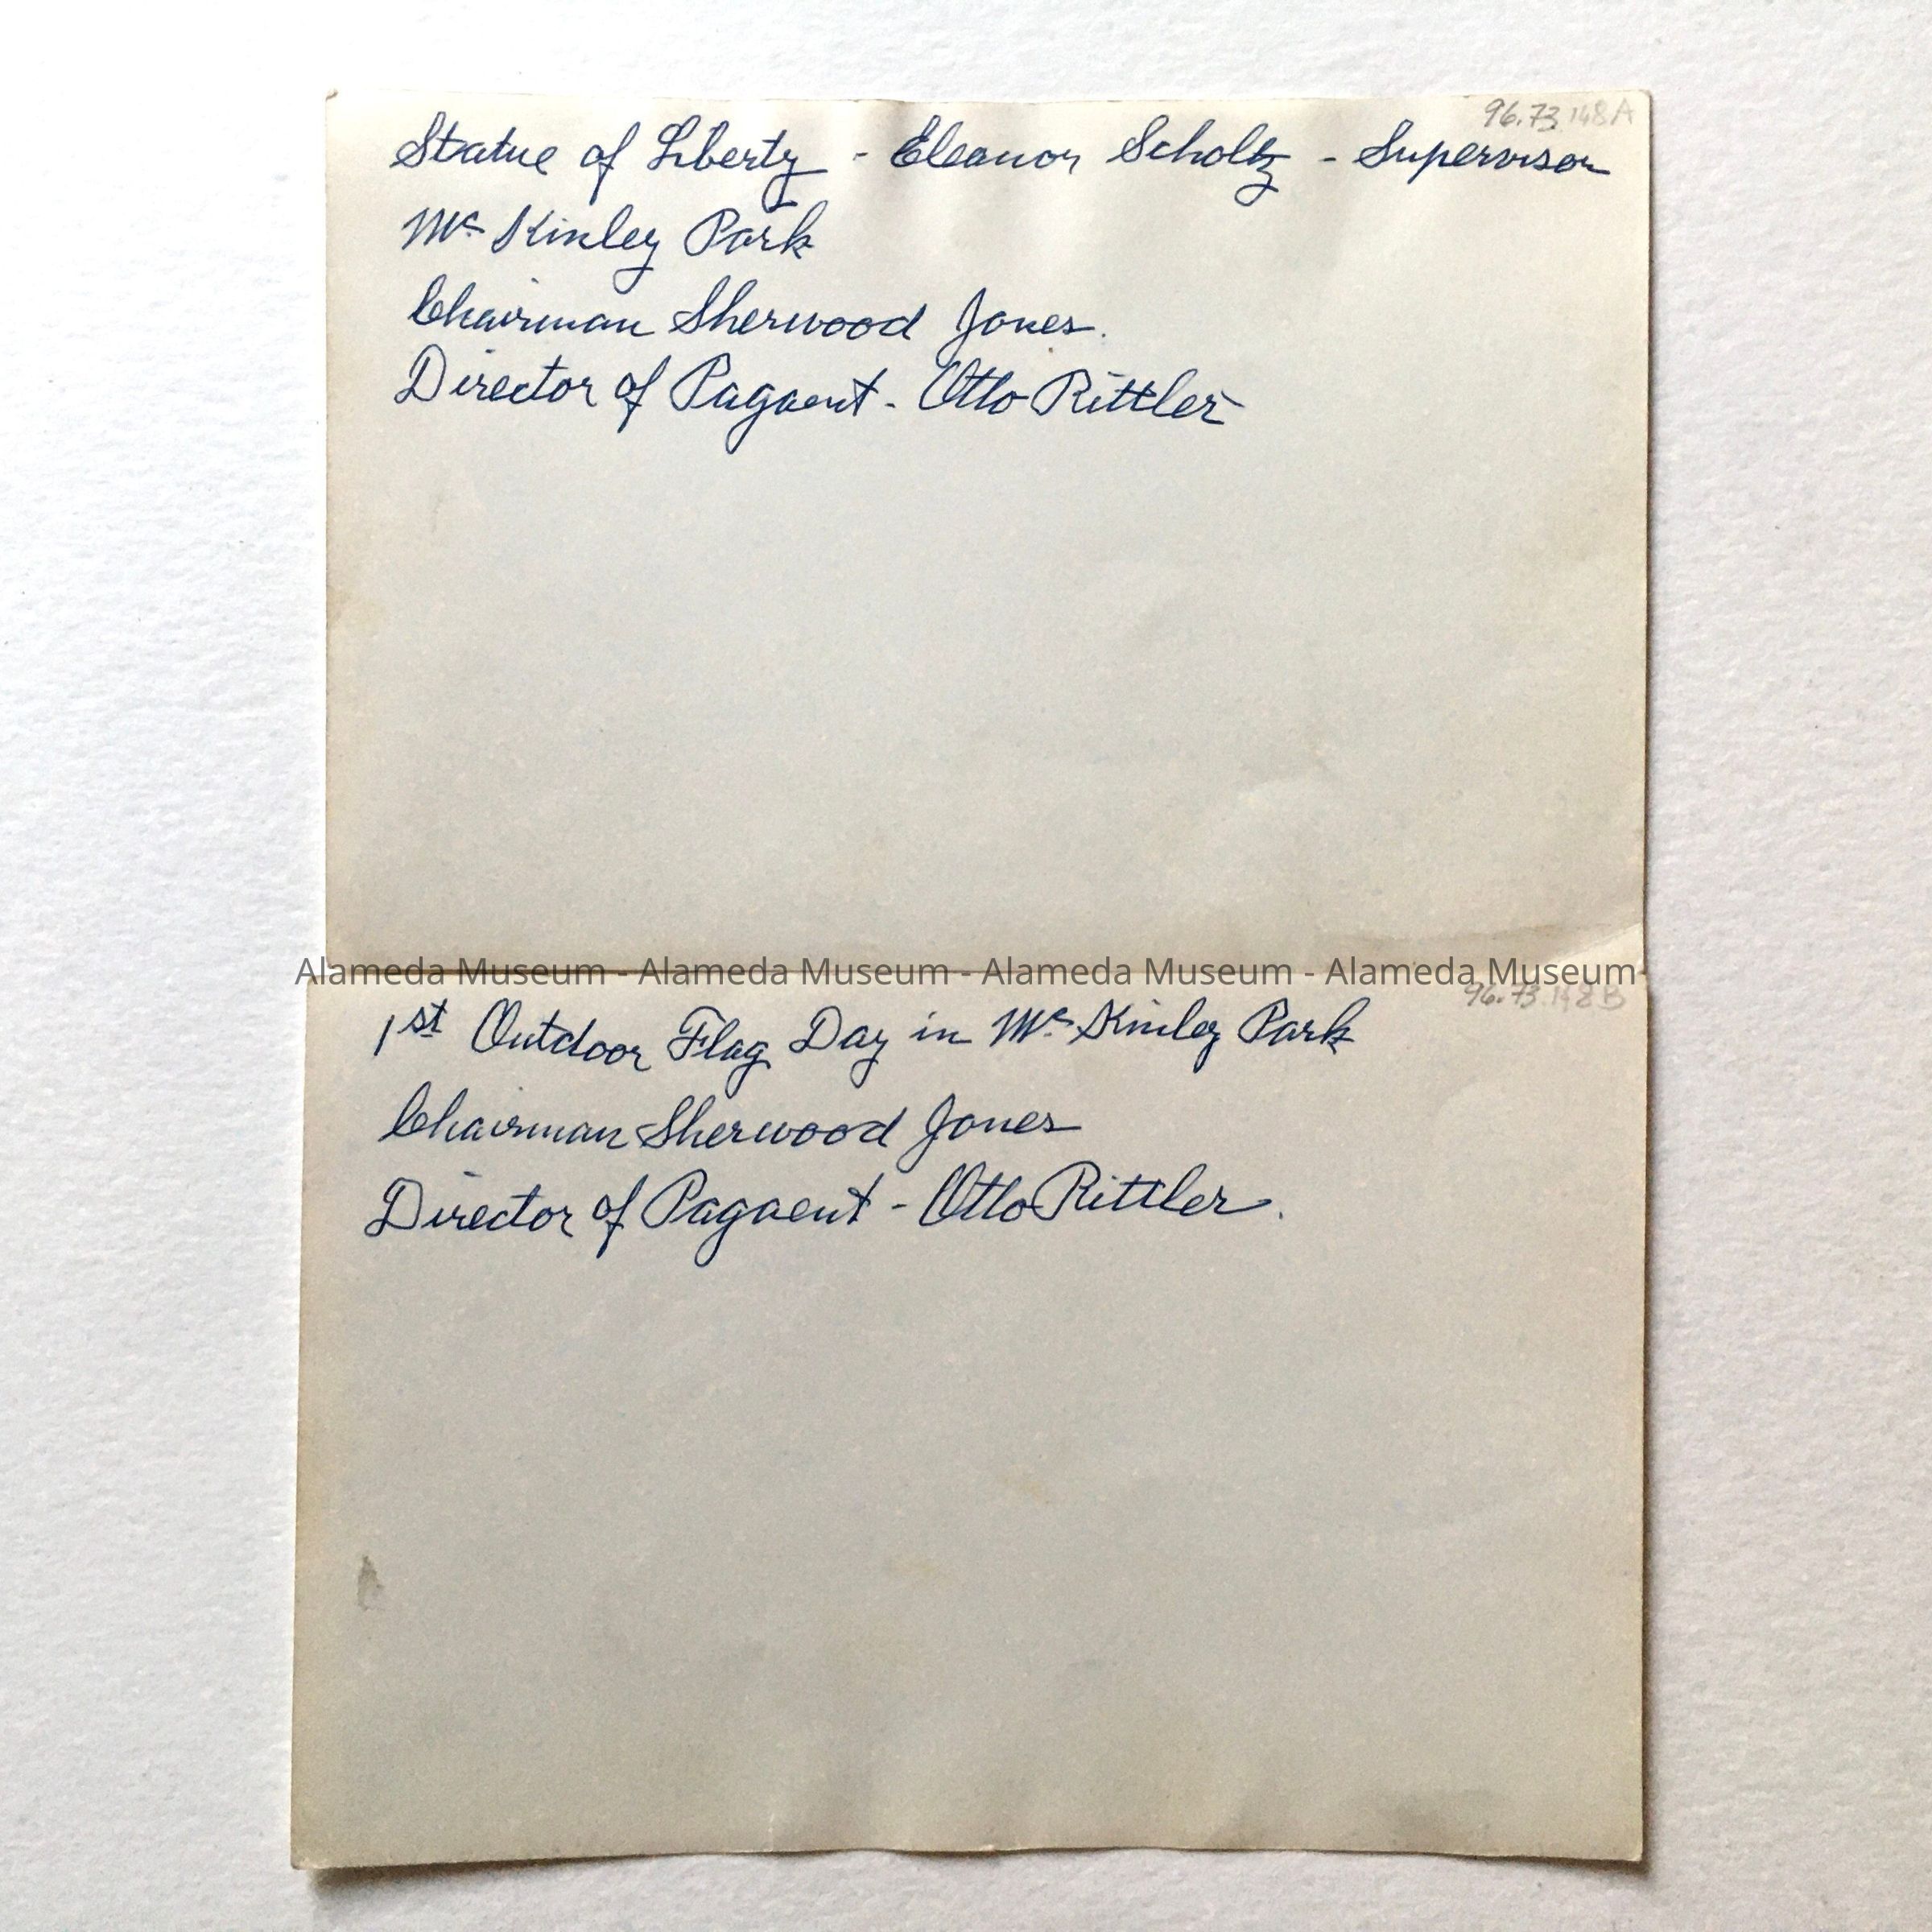 96.73.148A
Statue of Liberty - Eleanor Scholtz - Supervisor
Mc Kinley Park
Chairman Sherwood Jones.
Director of Pagaent - Otto Rittler
Alameda Museum - Alameda Museum - Alameda Museum - Alameda Museum
96.73.148B
1st Outdoor Flag Day in Mc Kinley Park
Chairman Sherwood Jones
Director of Pagaent - Otto Rittler.